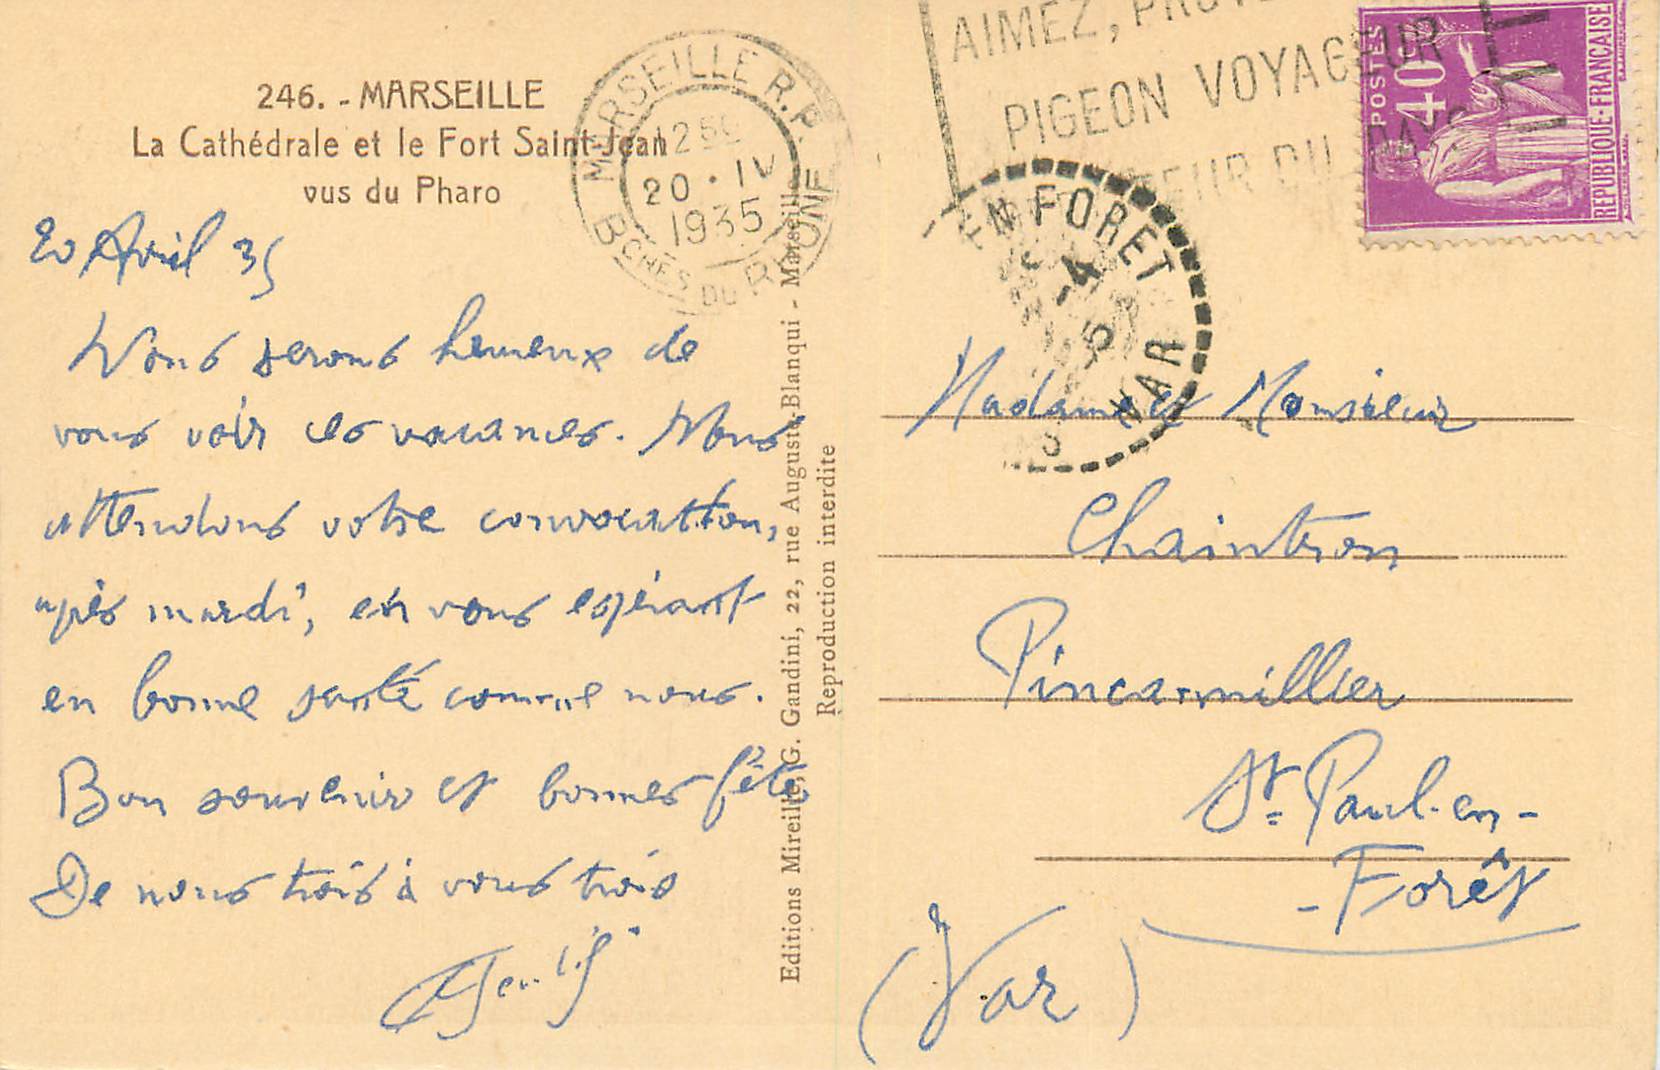 246. - MARSEILLE
La Cathédrale et le Fort Saint-Jean
vus du Pharo
20 Avril 35
Nous serons heureux de
vous voir ces vacances. Nous
attendons votre convocation,
après mardi, en vous espérant
en bonne santé comme nous.
Bon souvenir et bonnes fêtes
De nous trois à vous trois
Editions Mireille, G. Gandini, 22, rue Auguste-Blanqui - Marseille
Reproduction interdite
MARSEILLE R.P.
20 · IV
1935
BCHES DU RHONE
AIMEZ,
PIGEON VOYAGEUR
EUR DU PAYS
POSTES
40
REPUBLIQUE-FRANÇAISE
EN FORET
-4
VAR
Madame et Monsieur
Chaintron
Pincarmillier
St Paul-en-
-Forêt
(Var)